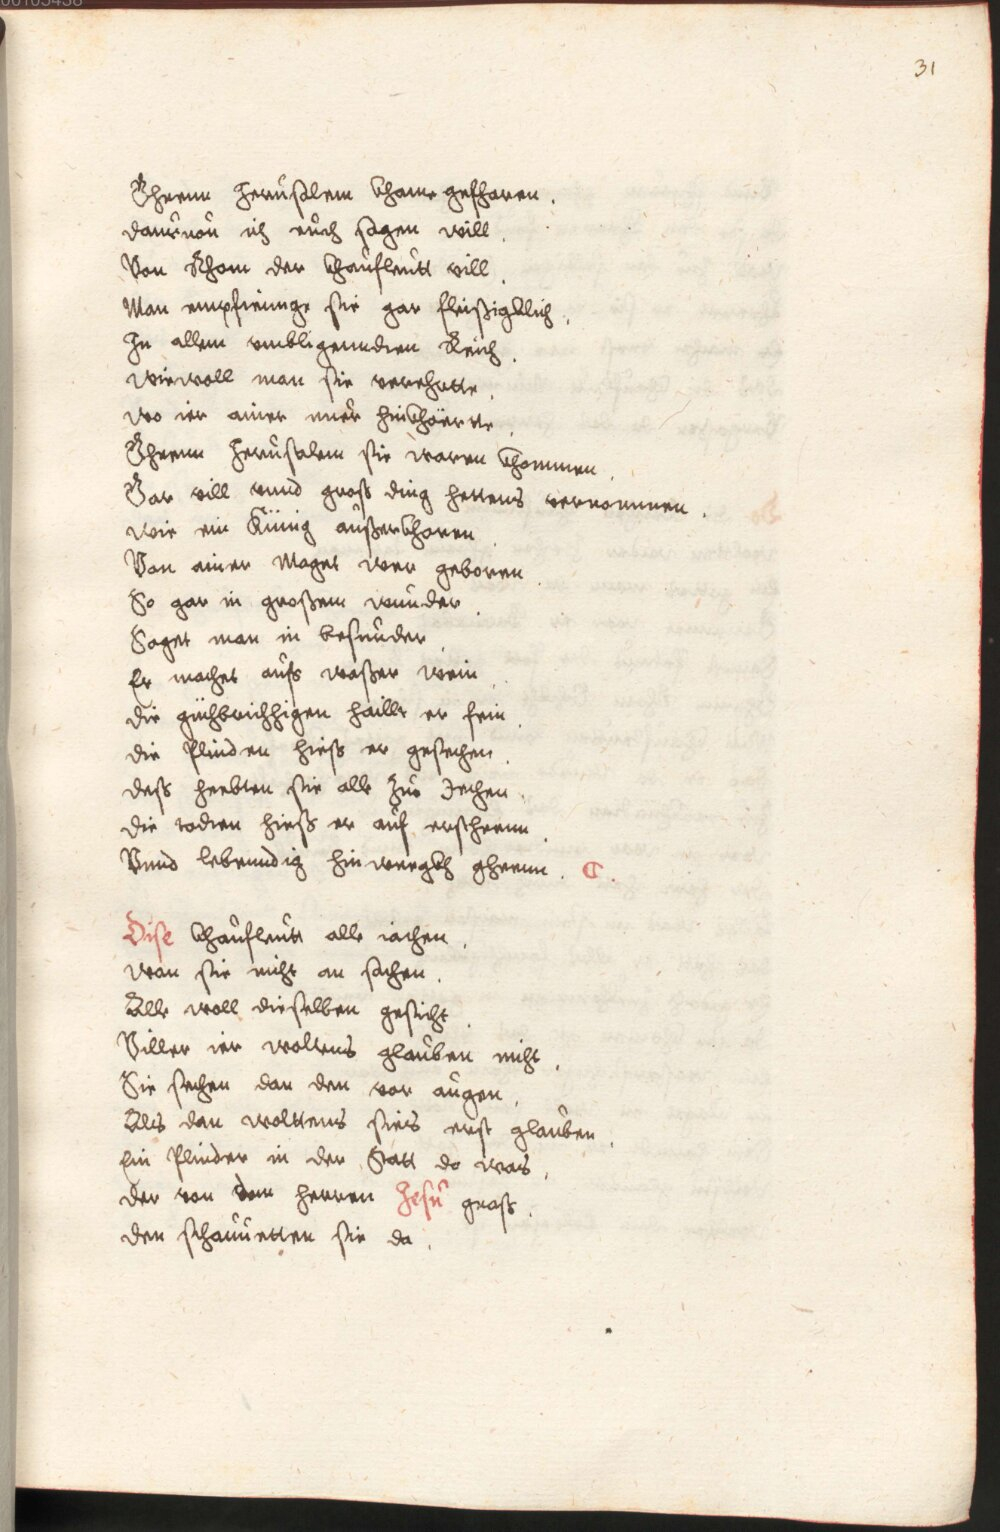 00105458
31
Gheenn Jerusalem khame gefharen.
dauvon ich euch sagen will.
Von Rhom der khaufleutt vill.
Man empfienge sie gar fleißigklich.
In allem umbligenndien Reich.
wiewoll man sie verehrtte.
wo ier ainer nuer hinkhöertte.
Gheenn Jerusalem sie waren khommen.
Gar vill unnd groß ding hettens vernommen.
wie ein Künig außerkhoren.
Von ainer Maget wer geboren.
So gar in großem wunder.
Saget man in besunder.
Er machet auß waßer wein.
die gichtbrichhigen haillt er fein.
die Plinden hieß er gesechen.
deß heebten sie alle zuo Jechen.
die todten hieß er auf ersteenn.
Unnd lebenndig hinwergkh gheenn. C.
Dise khaufleutt alle iachen.
wan sie nicht an sachen.
Alle woll dieselben gesicht.
Viller ier woltens glauben nicht.
Sie sechen dan den vor augen.
Als dan wolttens sies erst glauben.
Ein Plinder in der Statt do was.
der von dem herren Jesu genaß.
den schauuetten sie da.